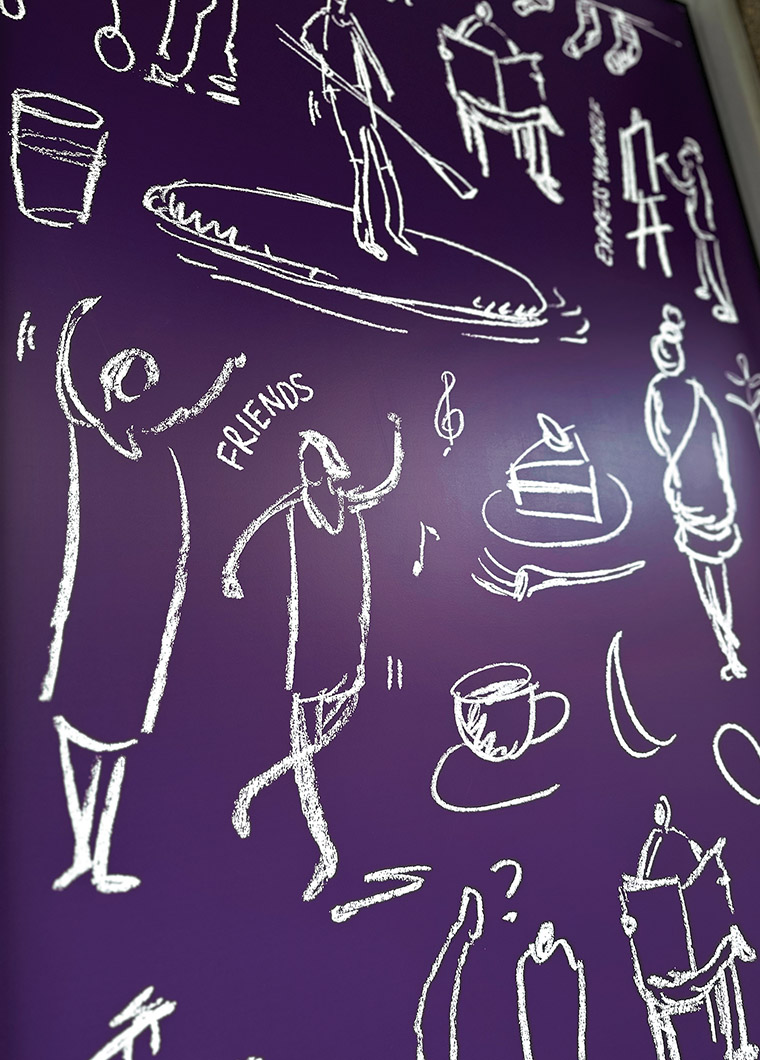 EXPRESS YOURSELF
FRIENDS
?